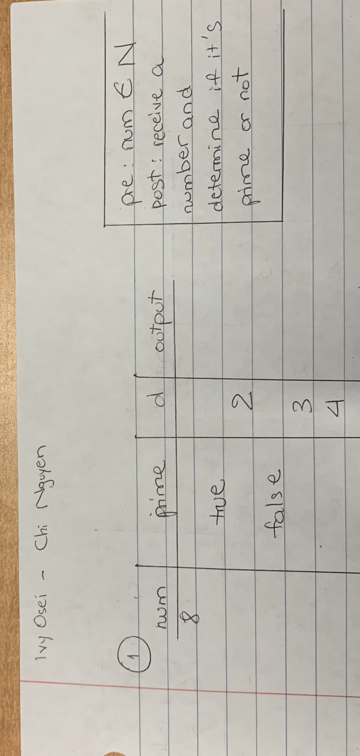 Ivy Osei - Chi Nguyen
1
num prime d output
8
true
2
false
3
4
pre: num ∈ N
post: receive a
number and
determine if it's
prime or not